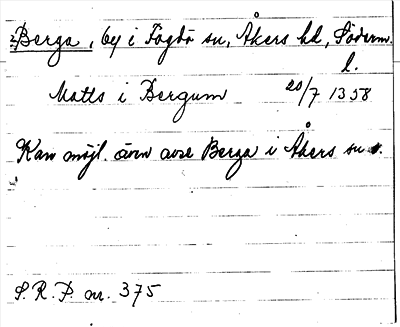 2 Berga, by i Fogdö sn, Åkers hd, Söderm.
l.
Matts i Bergum 20/7 1358
Kan möjl. även avse Berga i Åkers sn.
S.R.P. nr. 375